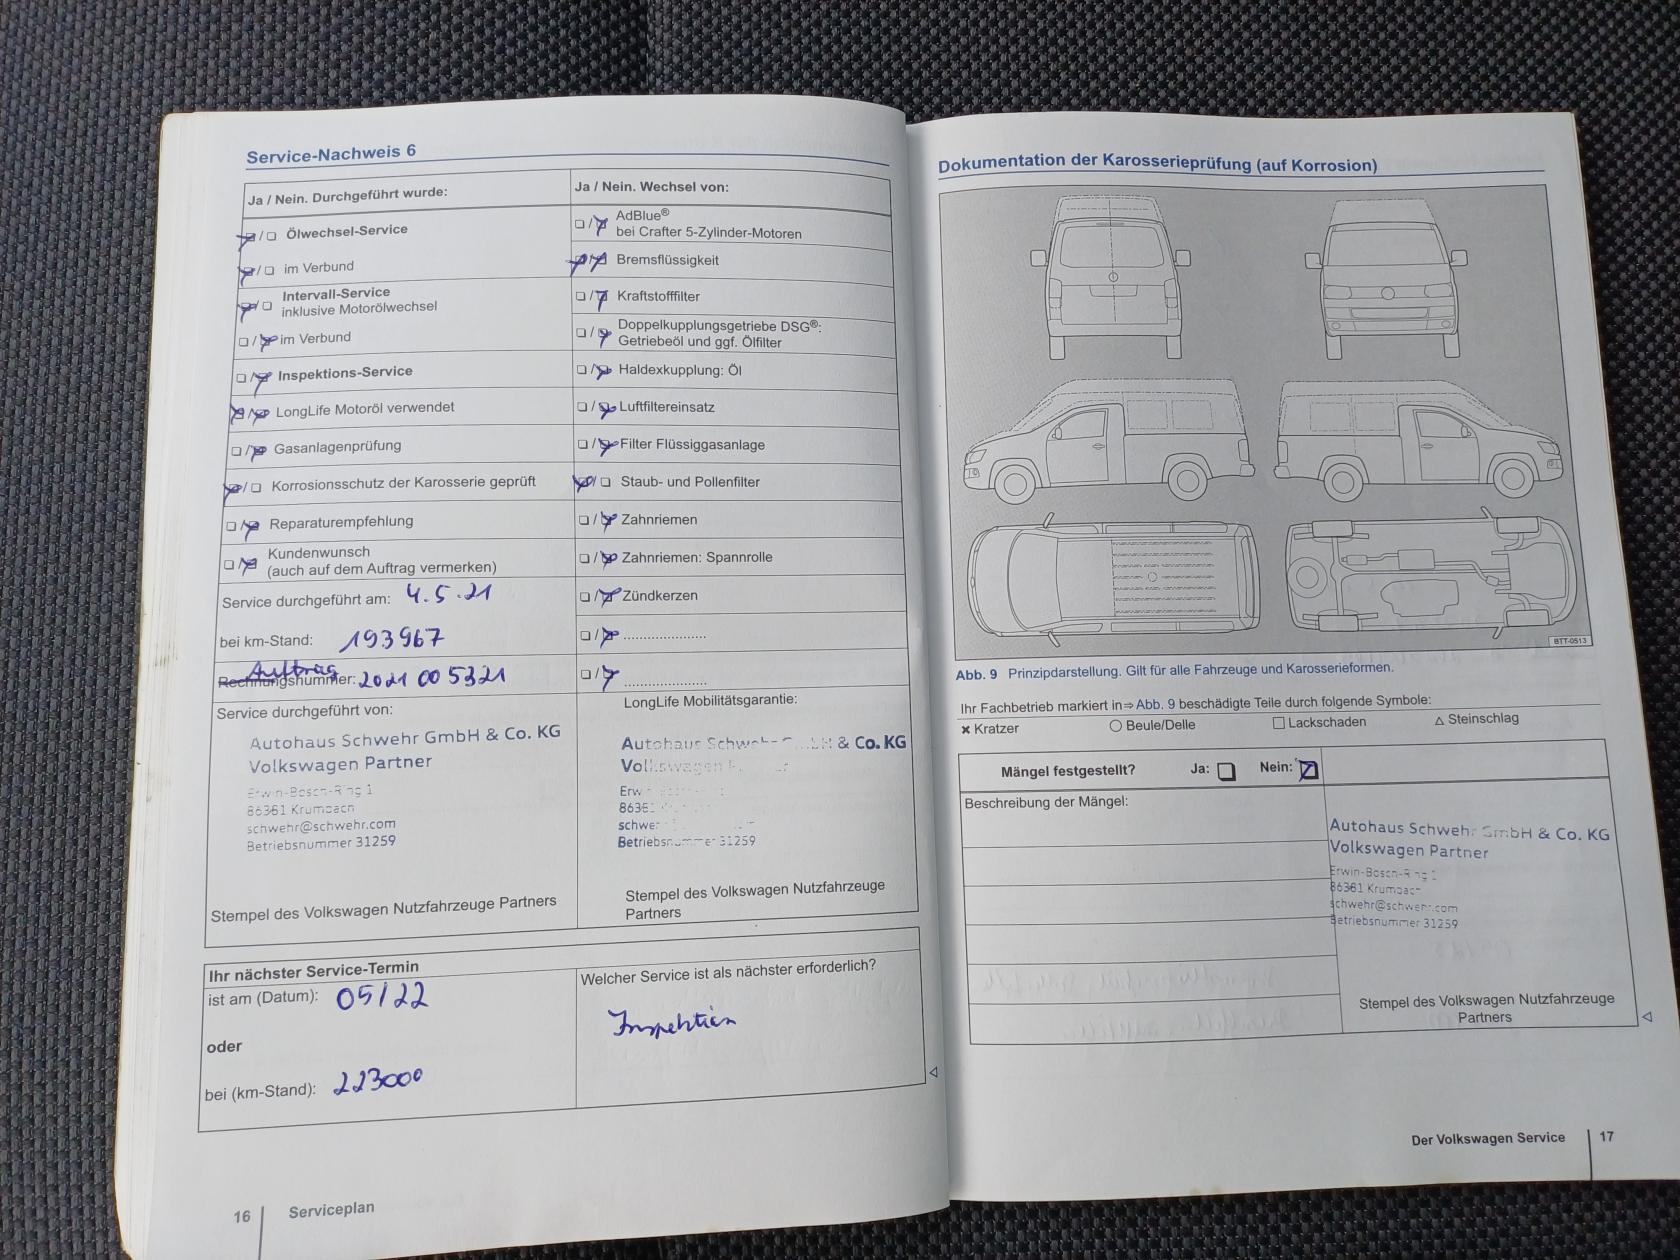 Service-Nachweis 6
Ja / Nein. Durchgeführt wurde:
Ölwechsel-Service
im Verbund
Intervall-Service
inklusive Motorölwechsel
im Verbund
Inspektions-Service
LongLife Motoröl verwendet
Gasanlagenprüfung
Korrosionsschutz der Karosserie geprüft
Reparaturempfehlung
Kundenwunsch
(auch auf dem Auftrag vermerken)
Service durchgeführt am: 4.5.21
bei km-Stand: 193967
Auftrag
Rechnungsnummer: 2021 005321
Service durchgeführt von:
Autohaus Schwehr GmbH & Co. KG
Volkswagen Partner
Erwin-Bosch-Ring 1
86381 Krumbach
schwehr@schwehr.com
Betriebsnummer 31259
Stempel des Volkswagen Nutzfahrzeuge Partners
Ja / Nein. Wechsel von:
AdBlue®
bei Crafter 5-Zylinder-Motoren
Bremsflüssigkeit
Kraftstofffilter
Doppelkupplungsgetriebe DSG®:
Getriebeöl und ggf. Ölfilter
Haldexkupplung: Öl
Luftfiltereinsatz
Filter Flüssiggasanlage
Staub- und Pollenfilter
Zahnriemen
Zahnriemen: Spannrolle
Zündkerzen
LongLife Mobilitätsgarantie:
Autohaus & Co. KG
Betriebsnummer 31259
Stempel des Volkswagen Nutzfahrzeuge
Partners
Ihr nächster Service-Termin
ist am (Datum): 05/22
oder
bei (km-Stand): 223000
Welcher Service ist als nächster erforderlich?
Inspektion
16 Serviceplan
Dokumentation der Karosserieprüfung (auf Korrosion)
BTT-0513
Abb. 9 Prinzipdarstellung. Gilt für alle Fahrzeuge und Karosserieformen.
Ihr Fachbetrieb markiert in ⇒ Abb. 9 beschädigte Teile durch folgende Symbole:
Kratzer Beule/Delle Lackschaden Steinschlag
Mängel festgestellt? Ja: Nein:
Beschreibung der Mängel:
Autohaus Schwehr GmbH & Co. KG
Volkswagen Partner
Erwin-Bosch-Ring 1
86381 Krumbach
schwehr@schwehr.com
Betriebsnummer 31259
Stempel des Volkswagen Nutzfahrzeuge
Partners
Der Volkswagen Service 17